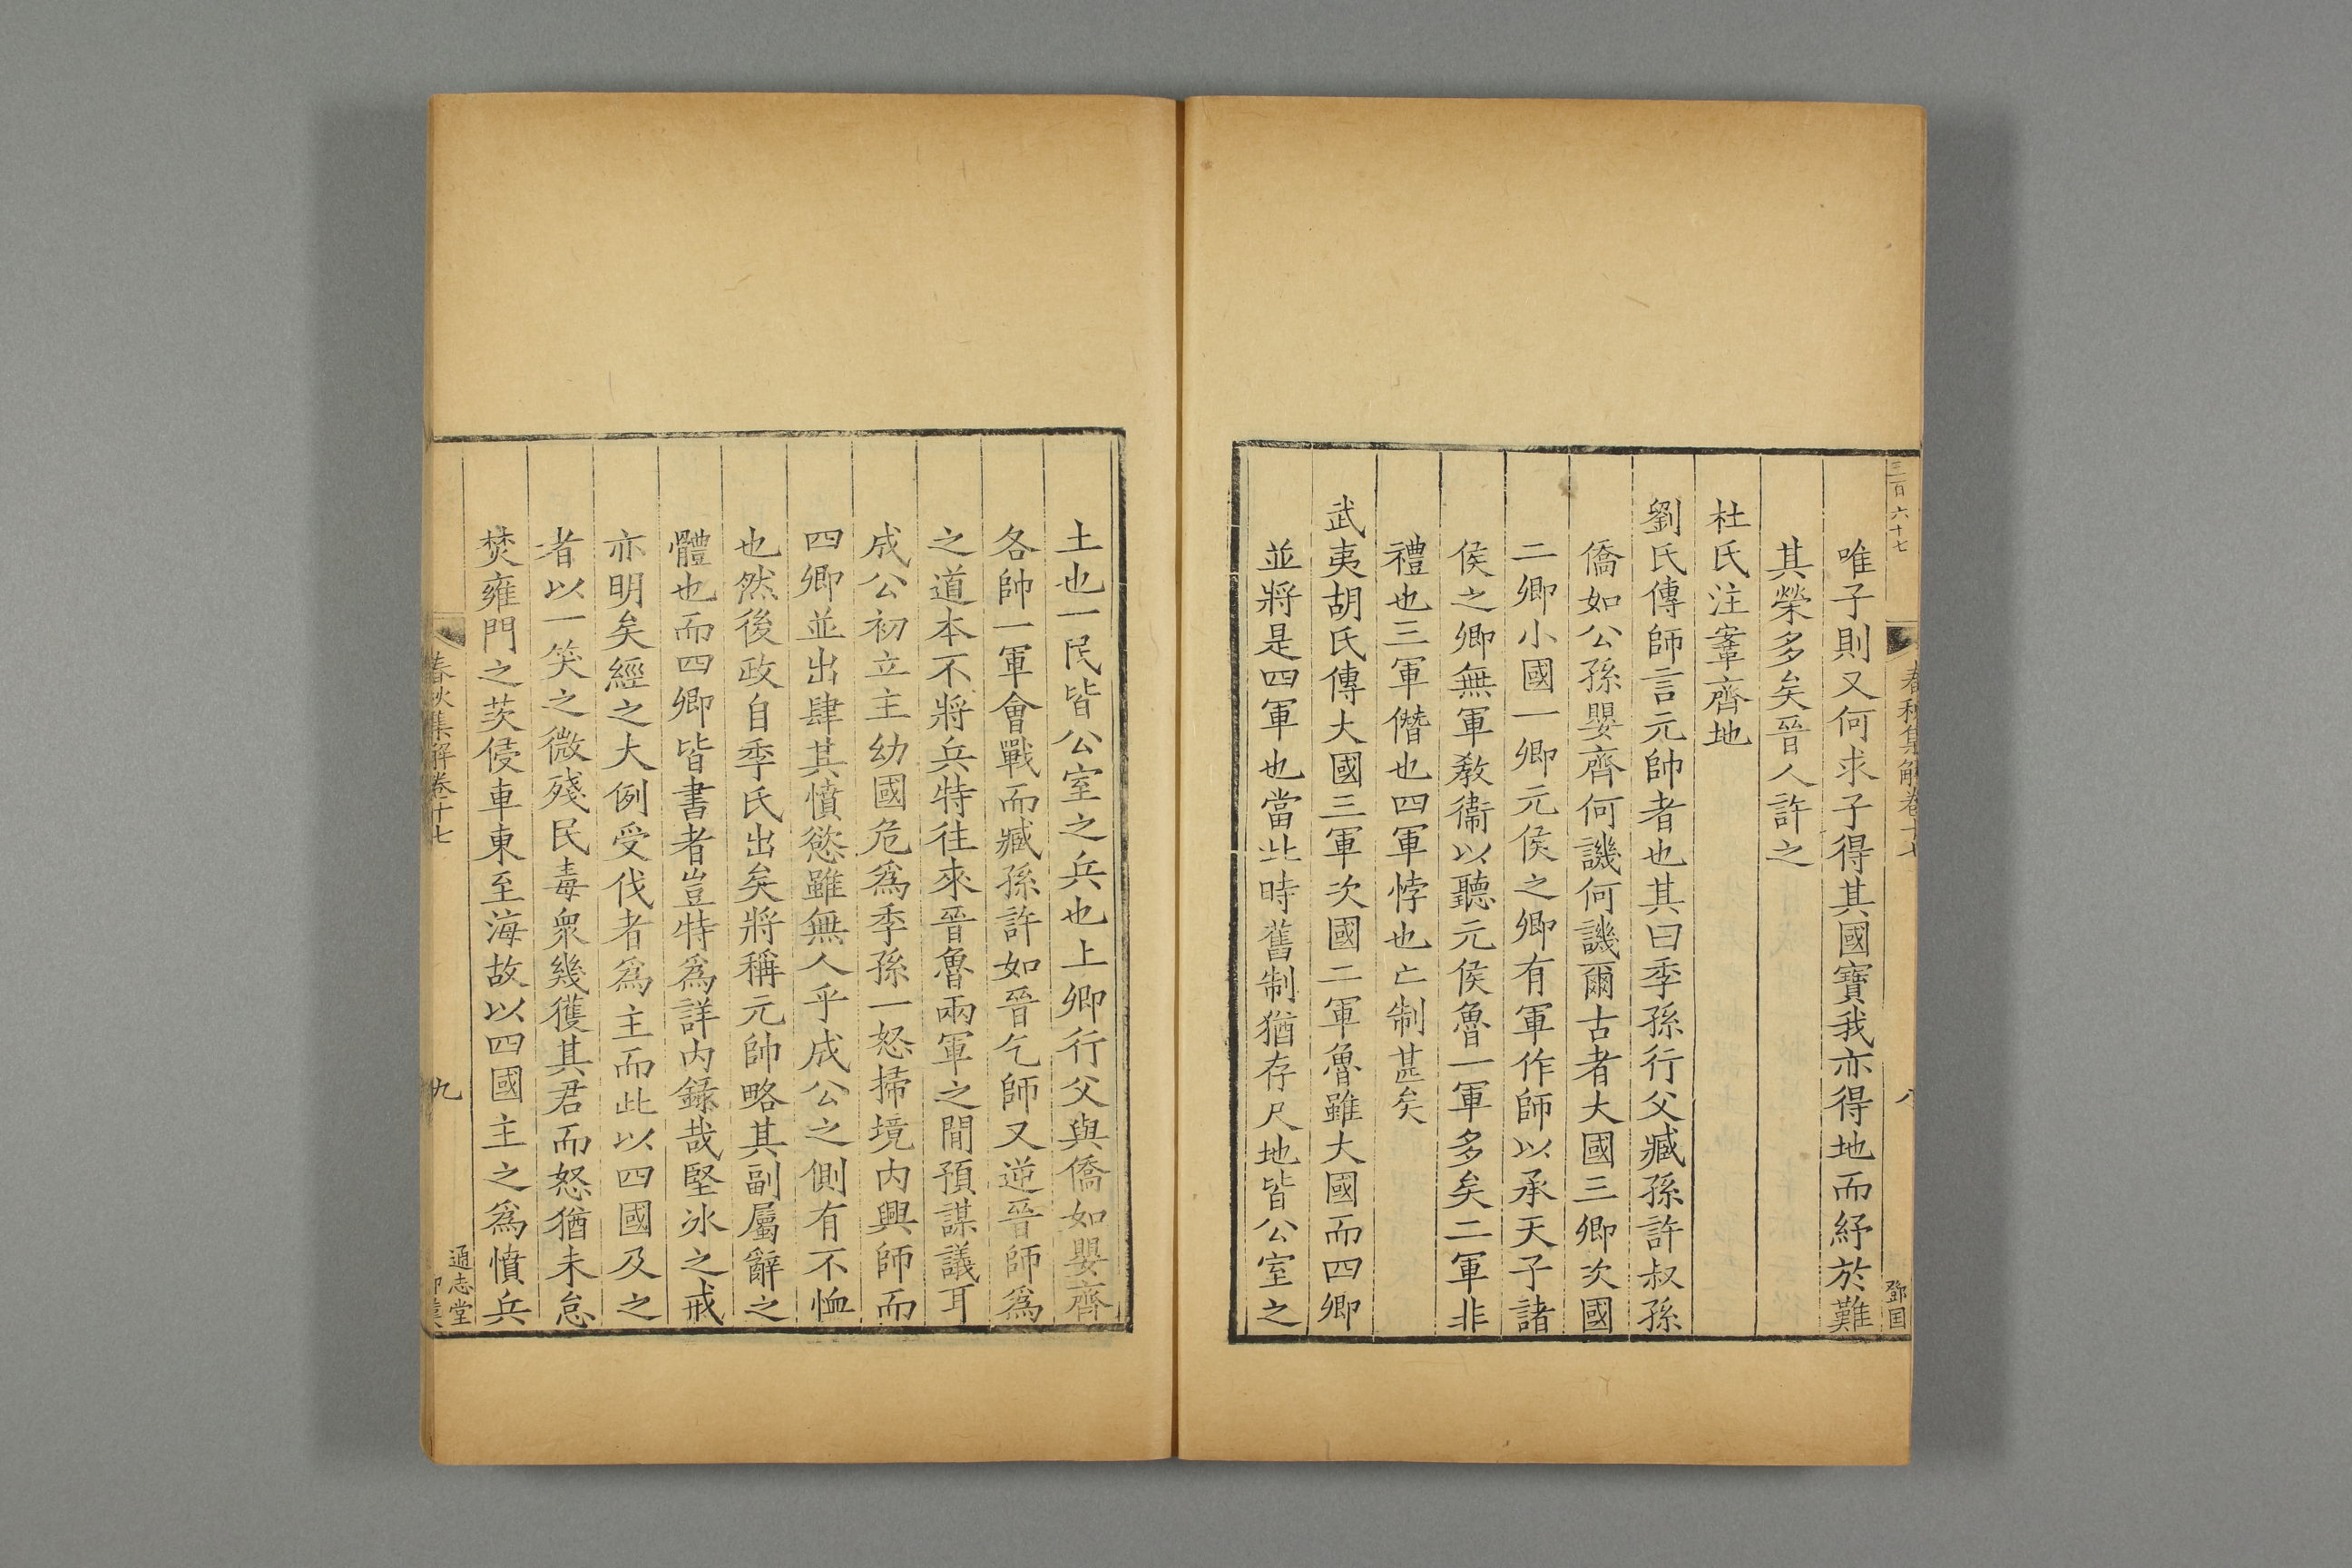 三百六十七
春秋集解卷十七
八
鄧国
唯子則又何求子得其國寶我亦得地而紓於難
其榮多矣晉人許之
杜氏注鞌齊地
劉氏傳師言元帥者也其曰季孫行父臧孫許叔孫
僑如公孫嬰齊何譏何譏爾古者大國三卿次國
二卿小國一卿元侯之卿有軍作師以承天子諸
侯之卿無軍敎衞以聽元侯魯一軍多矣二軍非
禮也三軍僭也四軍悖也亡制甚矣
武夷胡氏傳大國三軍次國二軍魯雖大國而四卿
並將是四軍也當此時舊制猶存尺地皆公室之
土也一民皆公室之兵也上卿行父與僑如嬰齊
各帥一軍會戰而臧孫許如晉乞師又逆晉師爲
之道本不將兵特往來晉魯兩軍之閒預謀議耳
成公初立主幼國危爲季孫一怒掃境内興師而
四卿並出肆其憤慾雖無人乎成公之側有不恤
也然後政自季氏出矣將稱元帥略其副屬辭之
體也而四卿皆書者豈特爲詳内錄哉堅冰之戒
亦明矣經之大例受伐者爲主而此以四國及之
者以一笑之微殘民毒衆幾獲其君而怒猶未怠
焚雍門之茨侵車東至海故以四國主之爲憤兵
春秋集解卷十七
九
通志堂